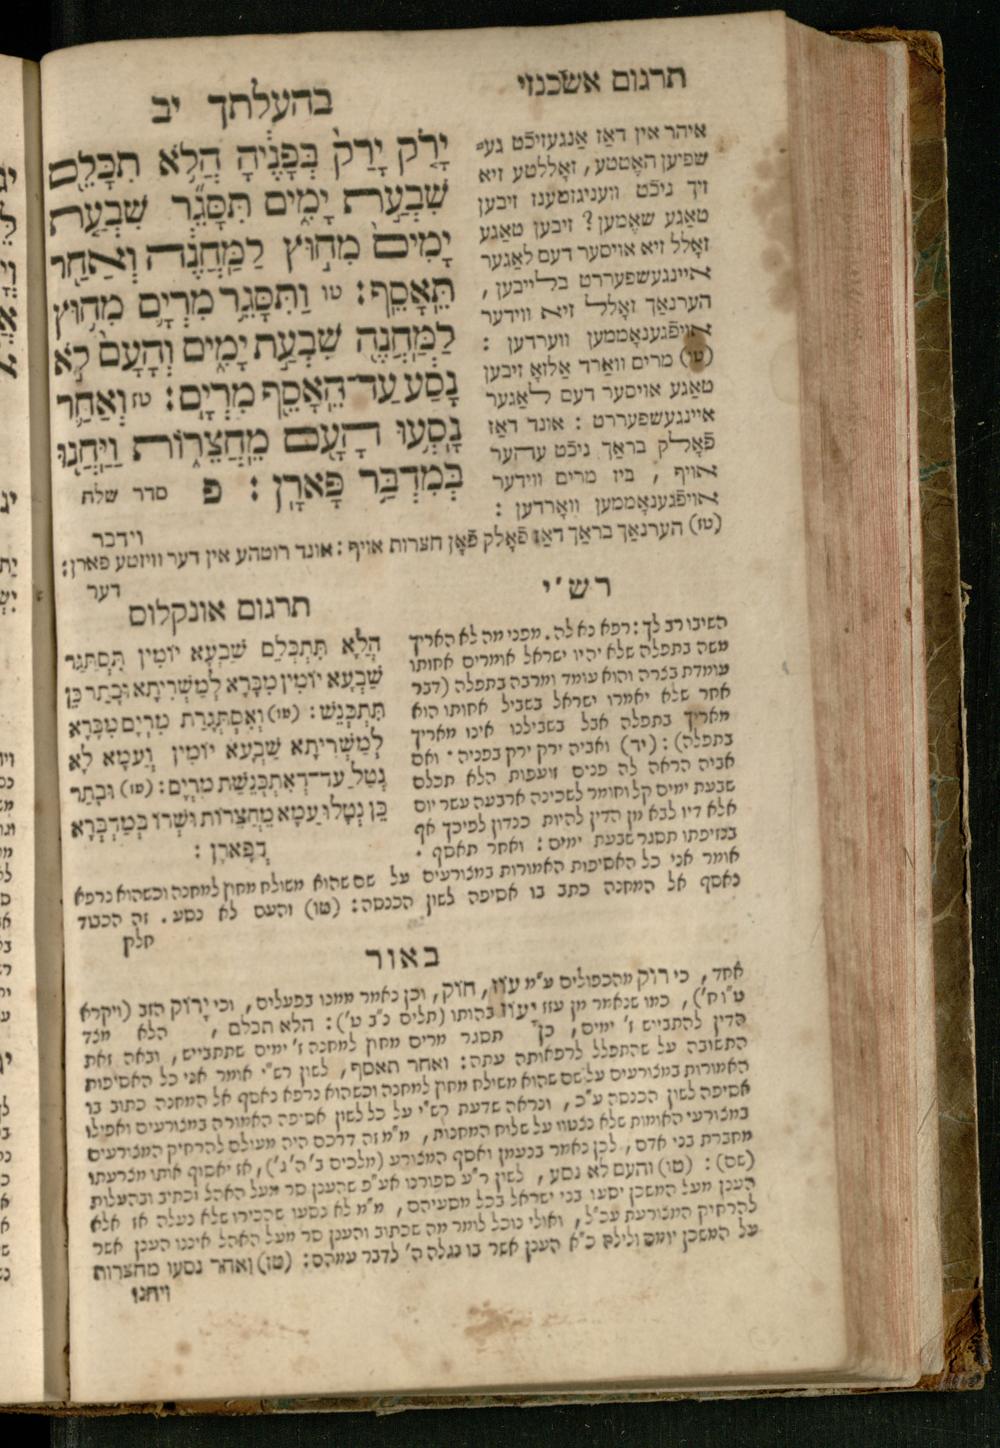 תרגום אשכנזי
בהעלתך יב
יָרֹ֤ק יָרַק֙ בְּפָנֶ֔יהָ הֲלֹ֥א תִכָּלֵ֖ם
שִׁבְעַ֣ת יָמִ֑ים תִּסָּגֵ֞ר שִׁבְעַ֤ת
יָמִים֙ מִח֣וּץ לַֽמַּחֲנֶ֔ה וְאַחַ֖ר
תֵּֽאָסֵֽף׃ טו וַתִּסָּגֵ֥ר מִרְיָ֛ם מִח֥וּץ
לַֽמַּחֲנֶ֖ה שִׁבְעַ֣ת יָמִ֑ים וְהָעָם֙ לֹ֣א
נָסַ֔ע עַד־הֵאָסֵ֖ף מִרְיָֽם׃ טז וְאַחַ֛ר
נָסְע֥וּ הָעָ֖ם מֵֽחֲצֵר֑וֹת וַֽיַּחֲנ֖וּ
בְּמִדְבַּ֥ר פָּארָֽן׃ פ סדר שלח
איהר אין דאַז אַנגעזיכֿט גע־
שפיען האָטטע, זאָללטע זיא
זיך ניכֿט וועניגסטענז זיבען
טאַגע שאֶמען? זיבען טאַגע
זאָלל זיא אויסער דעם לאַגער
איינגעשפעררט בלייבען,
הערנאַך זאָלל זיא ווידער
אויפֿגענאָממען ווערדען:
(טו) מרים וואַרד אַלזאָ זיבען
טאַגע אויסער דעם לאַגער
איינגעשפעררט: אונד דאַז
פֿאָלק בראַך ניכֿט עהער
אויף, ביז מרים ווידער
אויפֿגענאָממען וואָרדען:
(טז) הערנאַך בראַך דאַז פֿאָלק פֿאָן חצרות אויף: אונד רוטהע אין דער וויזטע פארן:
וידבר
דער
רש'י
השיבו רב לך: רפא נא לה. מפני מה לא האריך
משה בתפלה שלא יהיו ישראל אומרים אחותו
עומדת בצרה והוא עומד ומרבה בתפלה (דבר
אחר שלא יאמרו ישראל בשביל אחותו הוא
מאריך בתפלה אבל בשבילנו אינו מאריך
בתפלה): (יד) ואביה ירק ירק בפניה. ואם
אביה הראה לה פנים זועפות הלא תכלם
שבעת ימים קל וחומר לשכינה ארבעה עשר יום
אלא דיו לבא מן הדין להיות כנדון לפיכך אף
בנזיפתו תסגר שבעת ימים: ואחר תאסף.
אומר אני כל האסיפות האמורות במצורעים על שם שהוא משולח מחוץ למחנה וכשהוא נרפא
נאסף אל המחנה כתב בו אסיפה לשון הכנסה: (טו) והעם לא נסע. זה הכבוד
חלק
תרגום אונקלוס
הֲלָא תִּתְכְּלֵם שַׁבְעָא יוֹמִין תִּסְתְּגַר
שַׁבְעָא יוֹמִין מִבָּרָא לְמַשְׁרִיתָא וּבָתַר כֵּן
תִּתְכְּנֵשׁ: (טו) וְאִסְתְּגָרַת מִרְיָם מִבָּרָא
לְמַשְׁרִיתָא שַׁבְעָא יוֹמִין וְעַמָּא לָא
נְטַל עַד־דְּאִתְכְּנֵשַׁת מִרְיָם: (טז) וּבָתַר
כֵּן נְטָלוּ עַמָּא מֵחֲצֵרוֹת וּשְׁרוֹ בְּמַדְבְּרָא
דְפָארָן:
באור
אחד, כי רוק מהכפולים ע"מ עוז, חוק, וכן נאמר ממנו בפעלים, וכי ירוק הזב (ויקרא
ט"ו ח'), כמו שנאמר מן עוז יעוז בהותו (תלים נ"ב ט'): הלא תכלם, הלא מצד
הדין להתבייש ז' ימים, כן תסגר מרים מחוץ למחנה ז' ימים שתתבייש, ובאה זאת
התשובה על שהתפלל לרפאותה עתה: ואחר תאסף, לשון רש"י אומר אני כל האסיפות
האמורות במצורעים על שם שהוא משולח מחוץ למחנה וכשהוא נרפא נאסף אל המחנה כתוב בו
אסיפה לשון הכנסה ע"כ, ונראה שדעת רש"י על כל לשון אסיפה האמורה במצורעים ואפילו
במצורעי האומות שלא נצטוו על שלוח המחנות, מ"מ זה דרכם היה מעולם להרחיק המצורעים
מחברת בני אדם, לכן נאמר בנעמן ואסף המצורע (מלכים ב' ה' ג'), אז יאסוף אותו מצרעתו
(שם): (טו) והעם לא נסע, לשון ר"ע ספורנו אע"פ שהענן סר מעל האהל וכתיב ובהעלות
הענן מעל המשכן יסעו בני ישראל בכל מסעיהם, מ"מ לא נסעו שהכירו שלא נעלה אז אלא
להרחיק המצורעת עכ"ל, ואולי נוכל לומר מה שכתוב והענן סר מעל האהל איננו הענן אשר
על המשכן יומם ולילה כ"א הענן אשר בו נגלה ה' לדבר עמהם: (טז) ואחר נסעו מחצרות
ויחנו